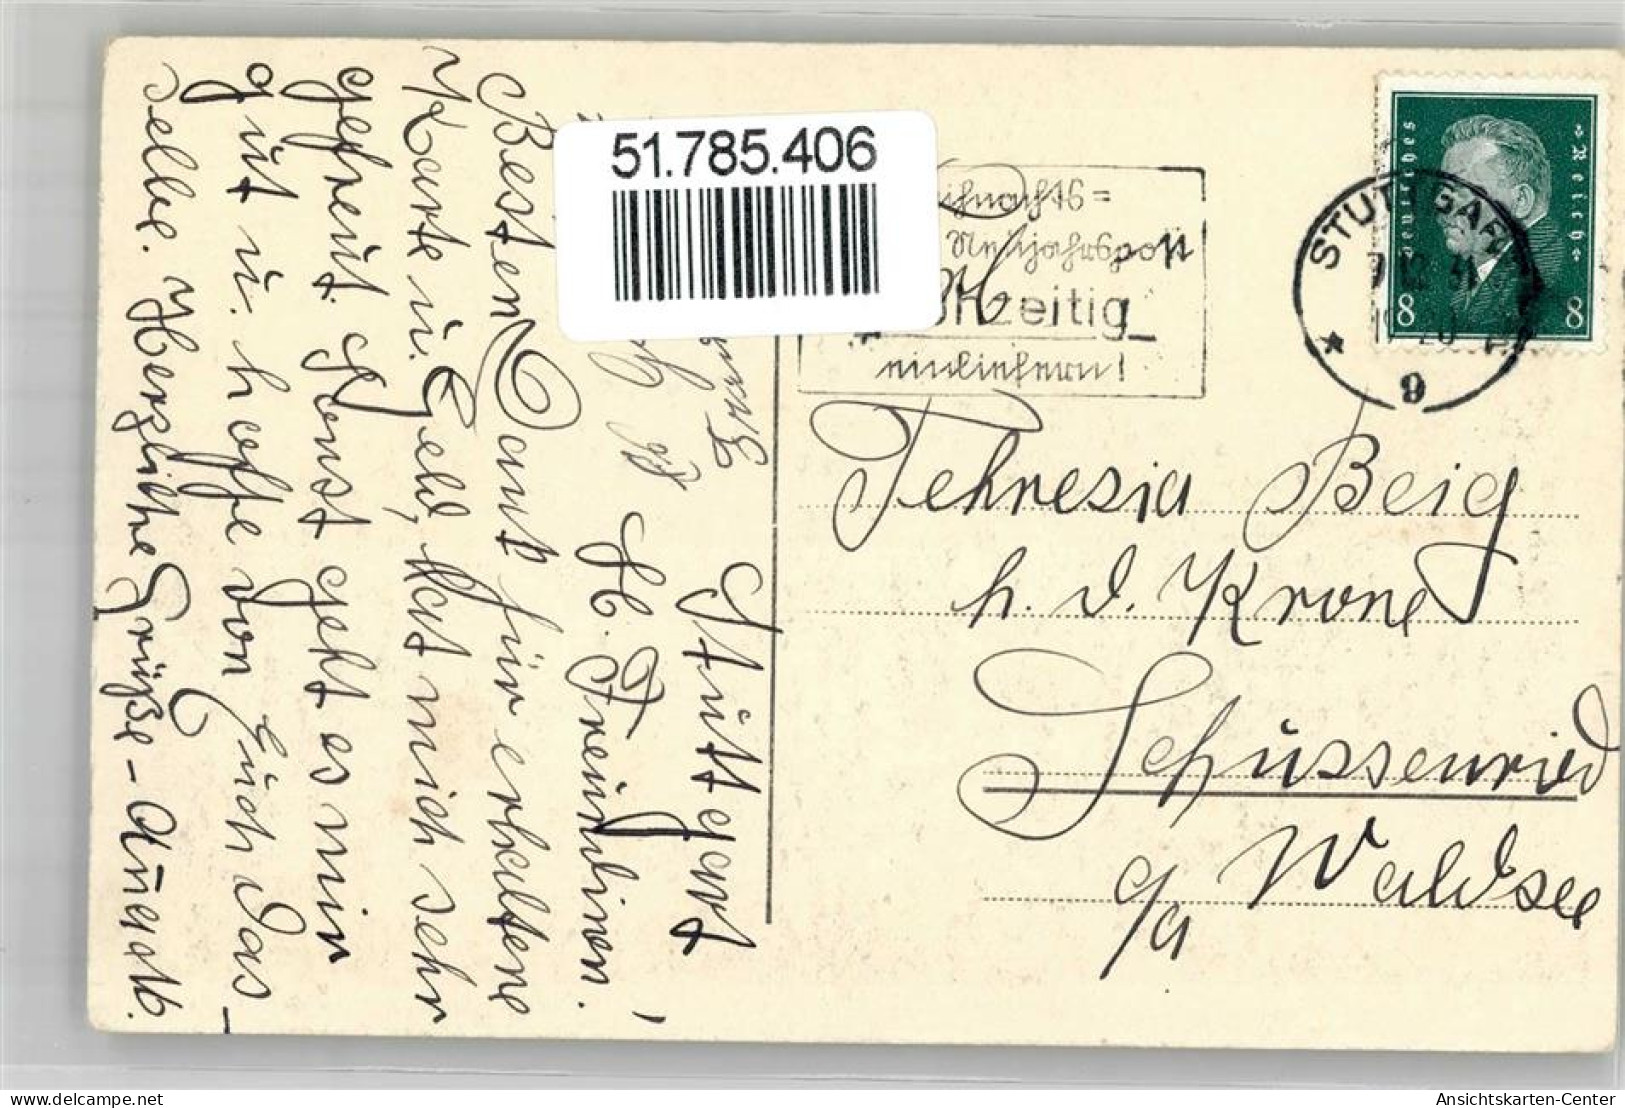 51.785.406
Neujahrspost
zeitig
einliefern!
STUTTGART
7 12 31
9
Deutsches Reich
8 8
Tehresia Beig
h. d. Krone
Schussenried
a/a Waldsee
Stuttgart
H. Freundinen!
Besten Dank für erhaltene
Karte u. Geld, hat mich sehr
gefreut. Sonst geht es mir
gut u. hoffe von Euch das-
selbe. Herzliche Grüße -
Ansichtskarten-Center